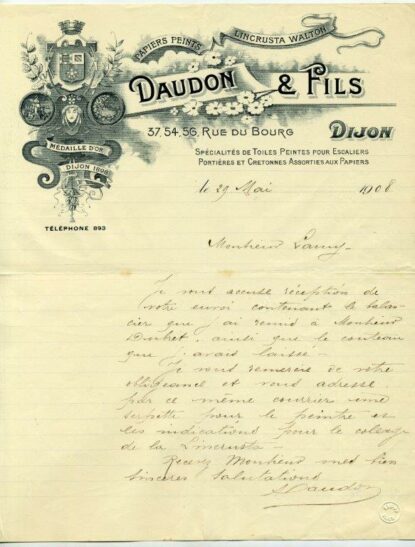 PAPIERS PEINTS
LINCRUSTA WALTON
DAUDON & FILS
37, 54, 56, RUE DU BOURG
DIJON
SPÉCIALITÉS DE TOILES PEINTES POUR ESCALIERS
PORTIÈRES ET CRETONNES ASSORTIES AUX PAPIERS
MÉDAILLE D'OR
DIJON 1898
TÉLÉPHONE 893
le 29 Mai 1908
Monsieur Lamy
Je vous accuse réception de
votre envoi contenant le balan-
cier que j'ai remis à Monsieur
ainsi que le couteau
que j'avais laissé
Je vous remercie de votre
obligeance et vous adresse
par ce même courrier une
serpette pour le peintre et
les indications pour le collage
de la Lincrusta
Recevez Monsieur mes bien
sincères salutations
Daudon